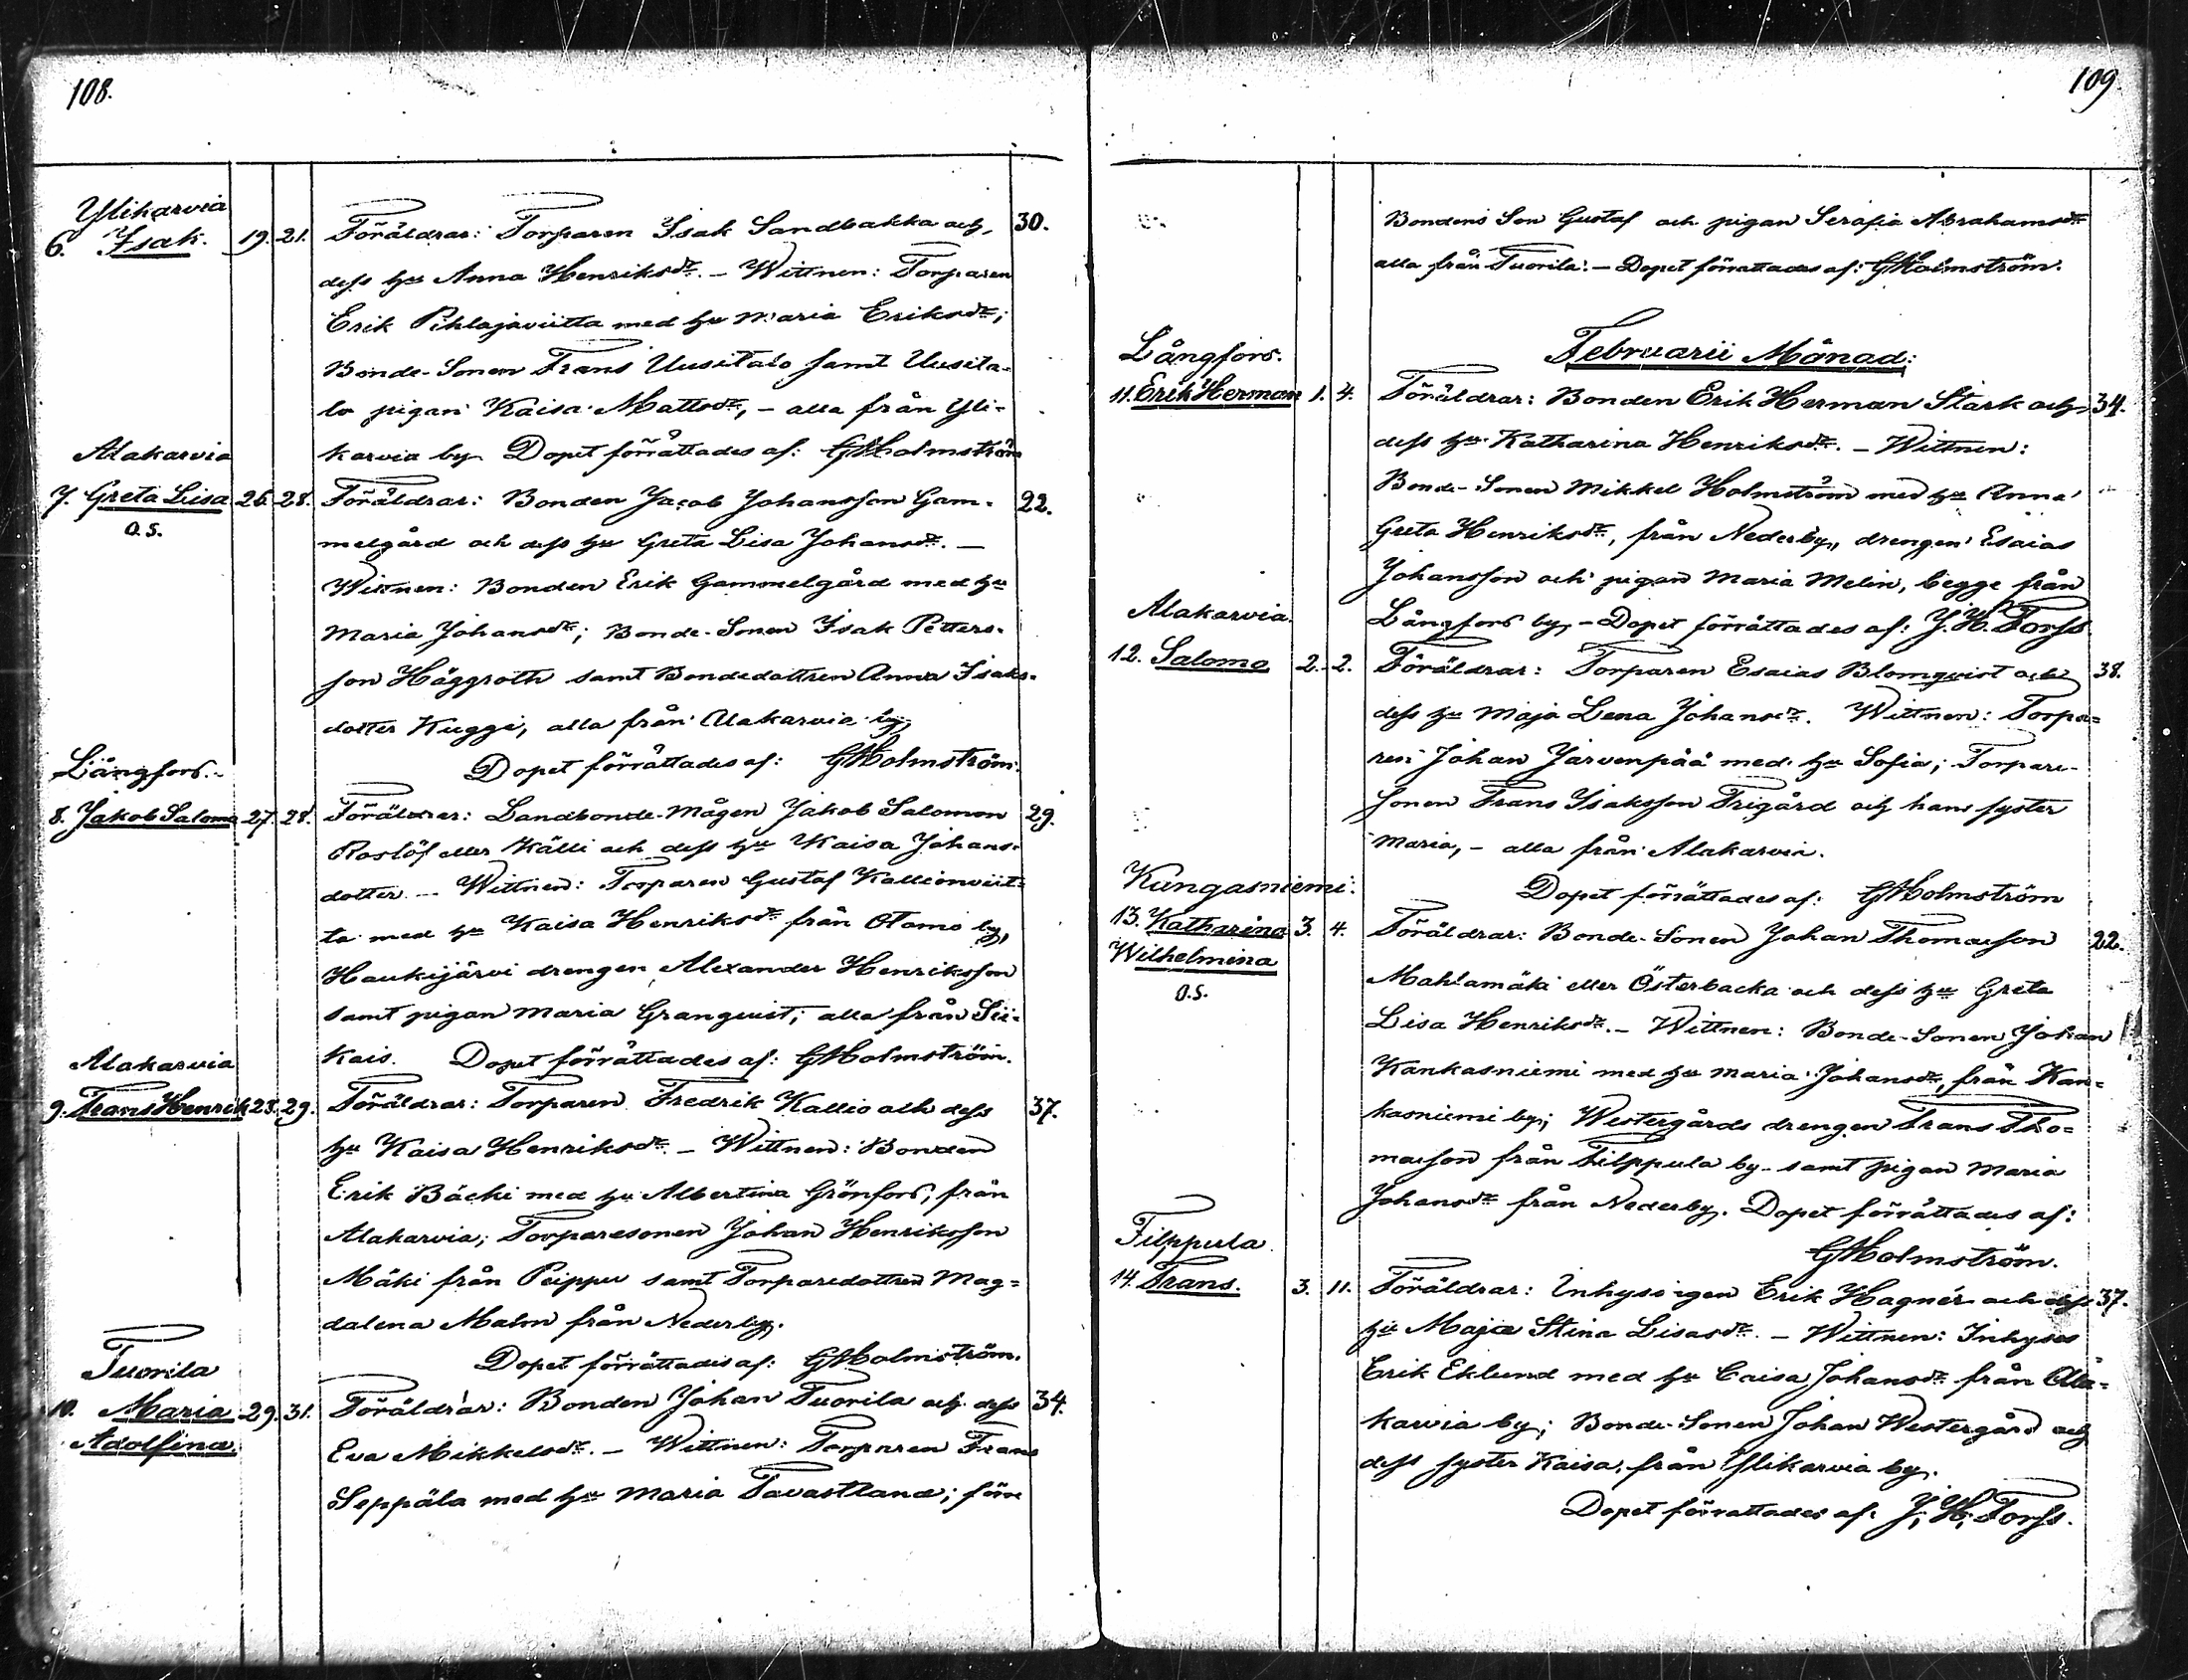 108.
Ylikarvia
6. Isak. 19. 21. Föräldrar: Torparen Isak Sandbakka och, 30.
dess hu Anna Henriksdr. – Wittnen: Torparen
Erik Pihlajaviitta med hu Maria Eriksdr;
Bonde-Sonen Frans Uusitalo samt Uusita-
lo pigan Kaisa Mattsdr, – alla från Yli-
karvia by Dopet förrättades af: GHolmström
Alakarvia
7. Greta Lisa 26. 28. Föräldrar: Bonden Jacob Johansson Gam- 22.
O.S.
melgård och dess hu Greta Lisa Johansdr. –
Wittnen: Bonden Erik Gammelgård med hu
Maria Johansdr; Bonde-Sonen Isak Petters-
son Häggroth samt Bondedottren Anna Isaks-
dotter Kuggi, alla från Alakarvia by,
Dopet förrättades af: GHolmström.
Långfors.
8. Jakob Salomo 27. 28. Föräldrar: Landbonde-Mågen Jakob Salomon 29.
Roslöf eller Källi och dess hu Kaisa Johans-
dotter. – Wittnen: Torparen Gustaf Kallionviit-
ta med hu Kaisa Henriksdr från Otamo by,
Haukijärvi drengen Alexander Henriksson
samt pigan Maria Granqvist; alla från Sii-
kais. Dopet förrättades af: GHolmström.
Alakarvia
9. Frans Henrik 28. 29. Föräldrar: Torparen Fredrik Kallio och dess 37.
hu Kaisa Henriksdr. – Wittnen: Bonden
Erik Bäcki med hu Albertina Grönfors, från
Alakarvia; Torparesonen Johan Henriksson
Mäki från Peippu samt Torparedottren Mag-
dalena Malm från Nederby.
Dopet förrättades af: GHolmström.
Tuorila
10. Maria 29. 31. Föräldrar: Bonden Johan Tuorila och dess 34.
Adolfina
Eva Mikkelsdr. – Wittnen: Torparen Frans
Seppäla med hu Maria Tavastland; förre
109.
Bondens Son Gustaf och pigan Serafia Abrahamsdr
alla från Tuorila. – Dopet förrättades af: GHolmström.
Februarii Månad:
Långfors.
11. Erik Herman 1. 4. Föräldrar: Bonden Erik Herman Stark och 34.
dess hu Katharina Henriksdr. – Wittnen:
Bonde-Sonen Mikkel Holmström med hu Anna
Greta Henriksdr, från Nederby, drengen Esaias
Johansson och pigan Maria Melin, begge från
Långfors by, – Dopet förrättades af: J. H. Forss
Alakarvia.
12. Salomo 2. 2. Föräldrar: Torparen Esaias Blomqvist och 38.
dess hu Maja Lena Johansdr. Wittnen: Torpa-
ren Johan Järvenpää med hu Sofia; Torpare-
sonen Frans Isaksson Frigård och hans syster
Maria, – alla från Alakarvia.
Dopet förrättades af: GHolmström
Kungasniemi.
13. Katharina 3. 4. Föräldrar: Bonde-Sonen Johan Thomasson 22.
Wilhelmina
O.S.
Mahlamäki eller Österbacka och dess hu Greta
Lisa Henriksdr. – Wittnen: Bonde-Sonen Johan
Kankasniemi med hu Maria Johansdr, från Kan-
kasniemi by; Westergårds drengen Frans Tho-
masson från Filppula by samt pigan Maria
Johansdr från Nederby. Dopet förrättades af:
GHolmström.
Filppula
14. Frans. 3. 11. Föräldrar: Inhysesigen Erik Hagnér och dess 37.
hu Maja Stina Lisasdr. – Wittnen: Inhyses
Erik Eklund med hu Caisa Johansdr från Ala-
karvia by; Bonde-Sonen Johan Westergård och
dess syster Kaisa, från Ylikarvia by.
Dopet förrättades af: J. H. Forss.